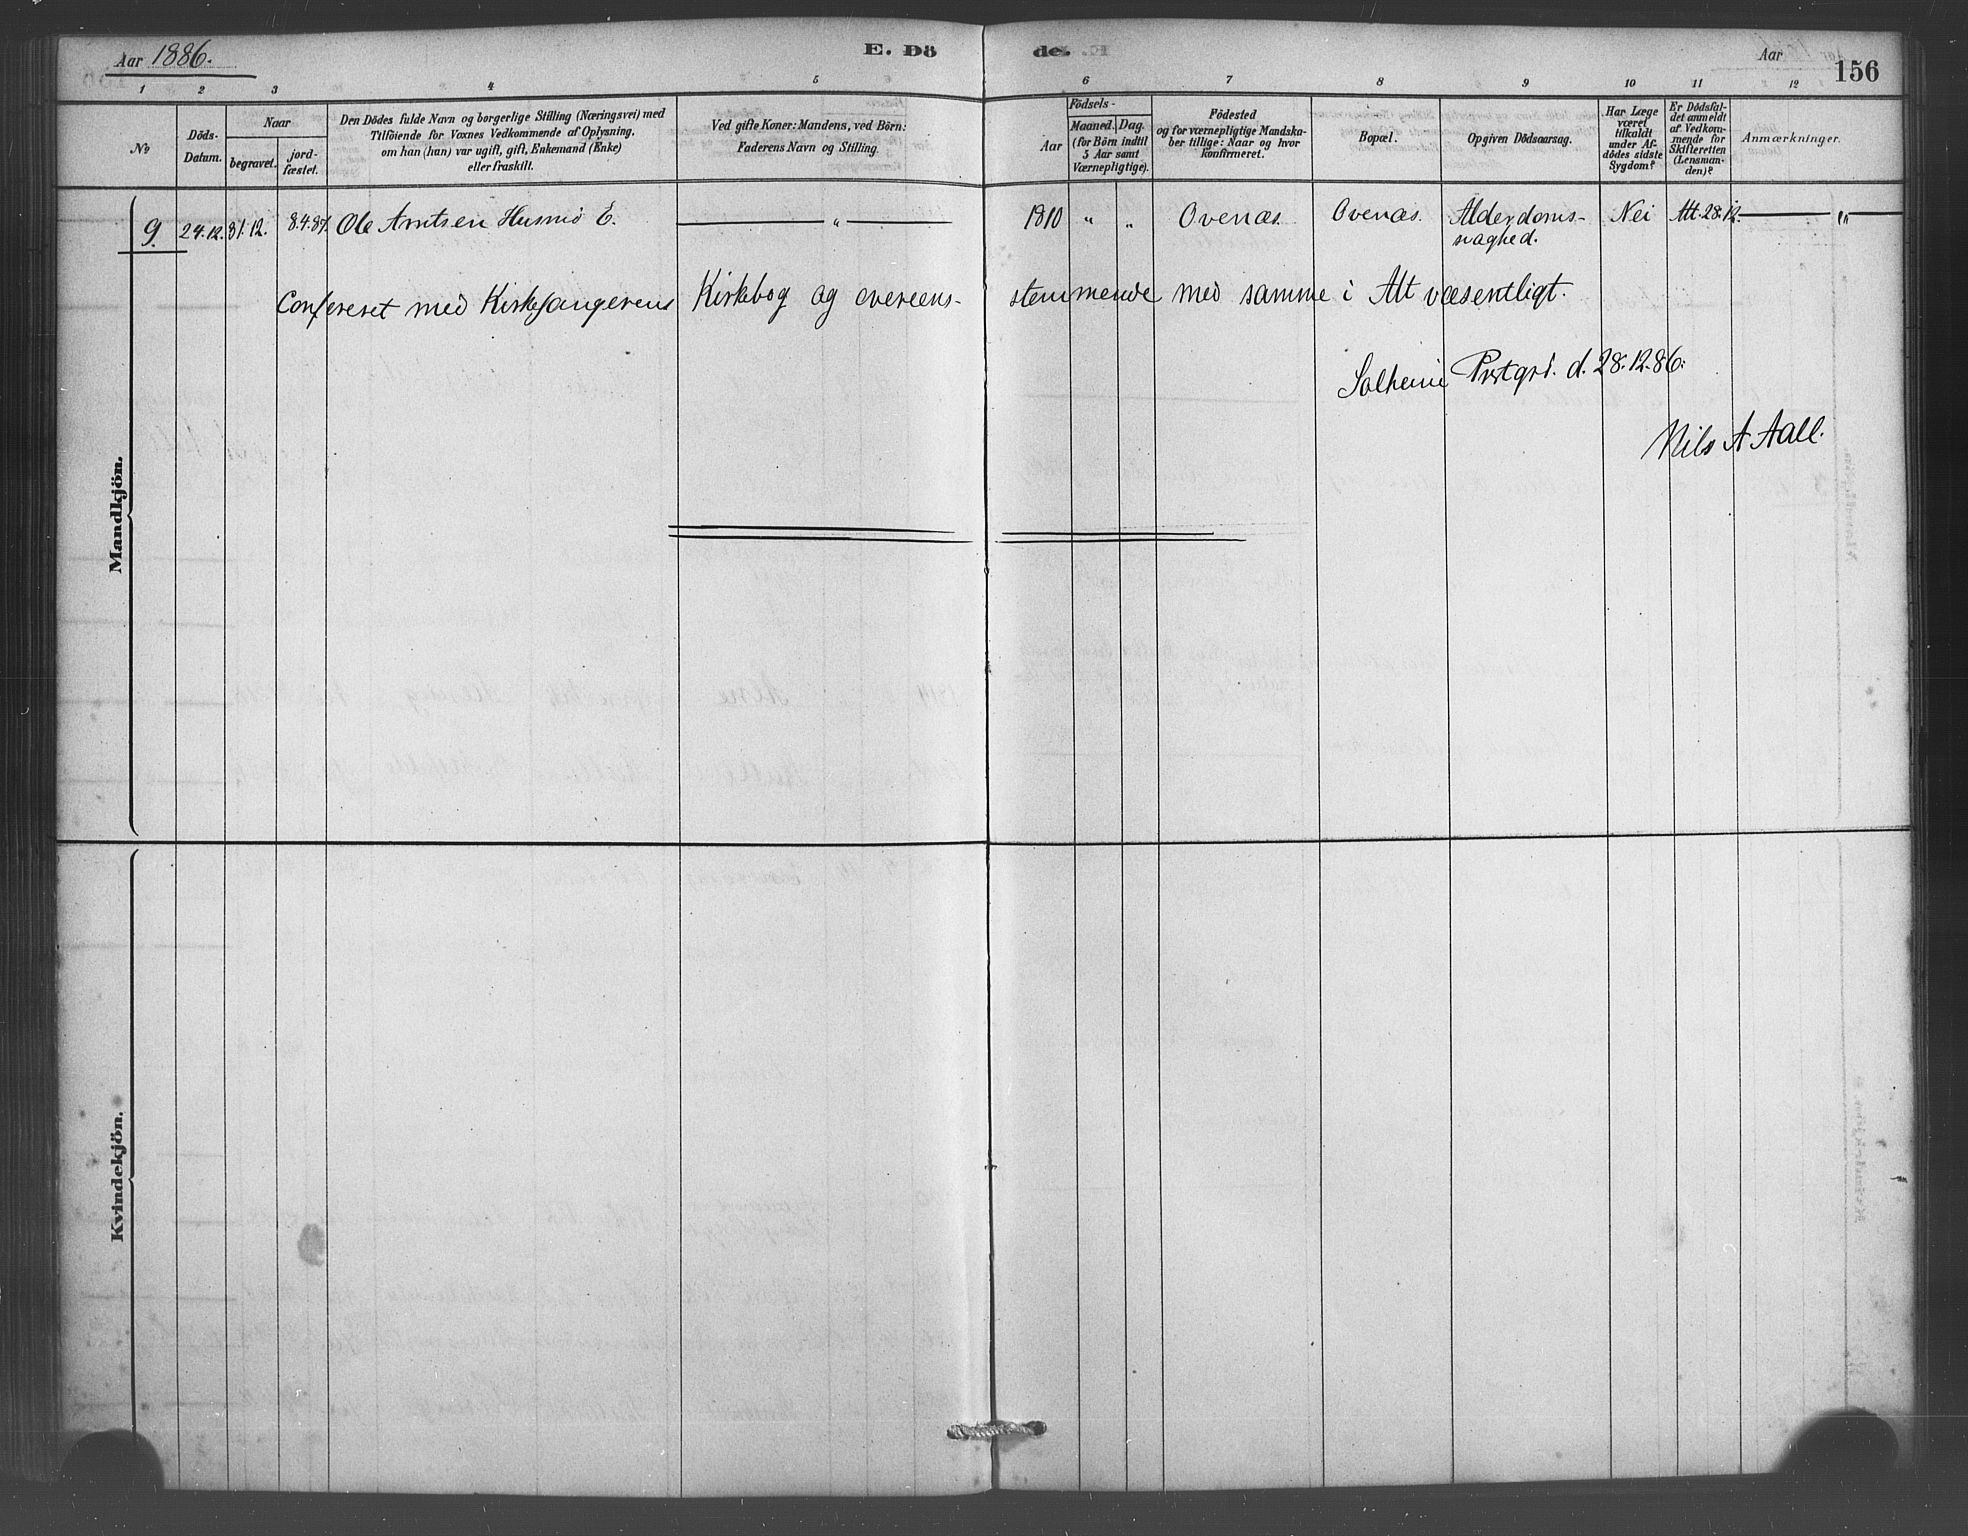 Aar 1886.
E. Döde.
Aar
156
1 2 3 4 5 6 7 8 9 10 11 12
No
Döds-Datum.
Naar
begravet.
jord-fæstet.
Den Dödes fulde Navn og borgerlige Stilling (Næringsvei) med
Tilföiende for Voxnes Vedkommende af Oplysning,
om han (hun) var ugift, gift, Enkemand (Enke)
eller fraskilt.
Ved gifte Koner: Mandens, ved Börn:
Faderens Navn og Stilling.
Födsels-
Aar
Maaned. Dag.
(for Börn indtil
5 Aar samt
Værnepligtige).
Födested
og for værnepligtige Mandska-
ber tillige: Naar og hvor
konfirmeret.
Bopæl.
Opgiven Dödsaarsag.
Har Læge
været
tilkaldt
under Af-
dödes sidste
Sygdom?
Er Dödsfal-
det anmeldt
af Vedkom-
mende for
Skifteretten
(Lensman-
den)?
Anmærkninger.
Mandkjön.
9. 24.12. 31.12. 8.4.87. Ole Arntsen Husmd E. — " — 1810 " " Ovenæs. Ovenæs. Alderdoms- Nei Att. 28.12. — " —
svaghed.
Confereret med Kirkesangerens Kirkebog og overeens-stemmende med samme i Alt væsentligt.
Solheim Prstgrd. d. 28.12.86.
Nils A Aall.
Kvindekjön.